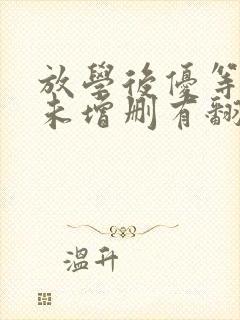 放學後優等
未增刪有翻
溫升